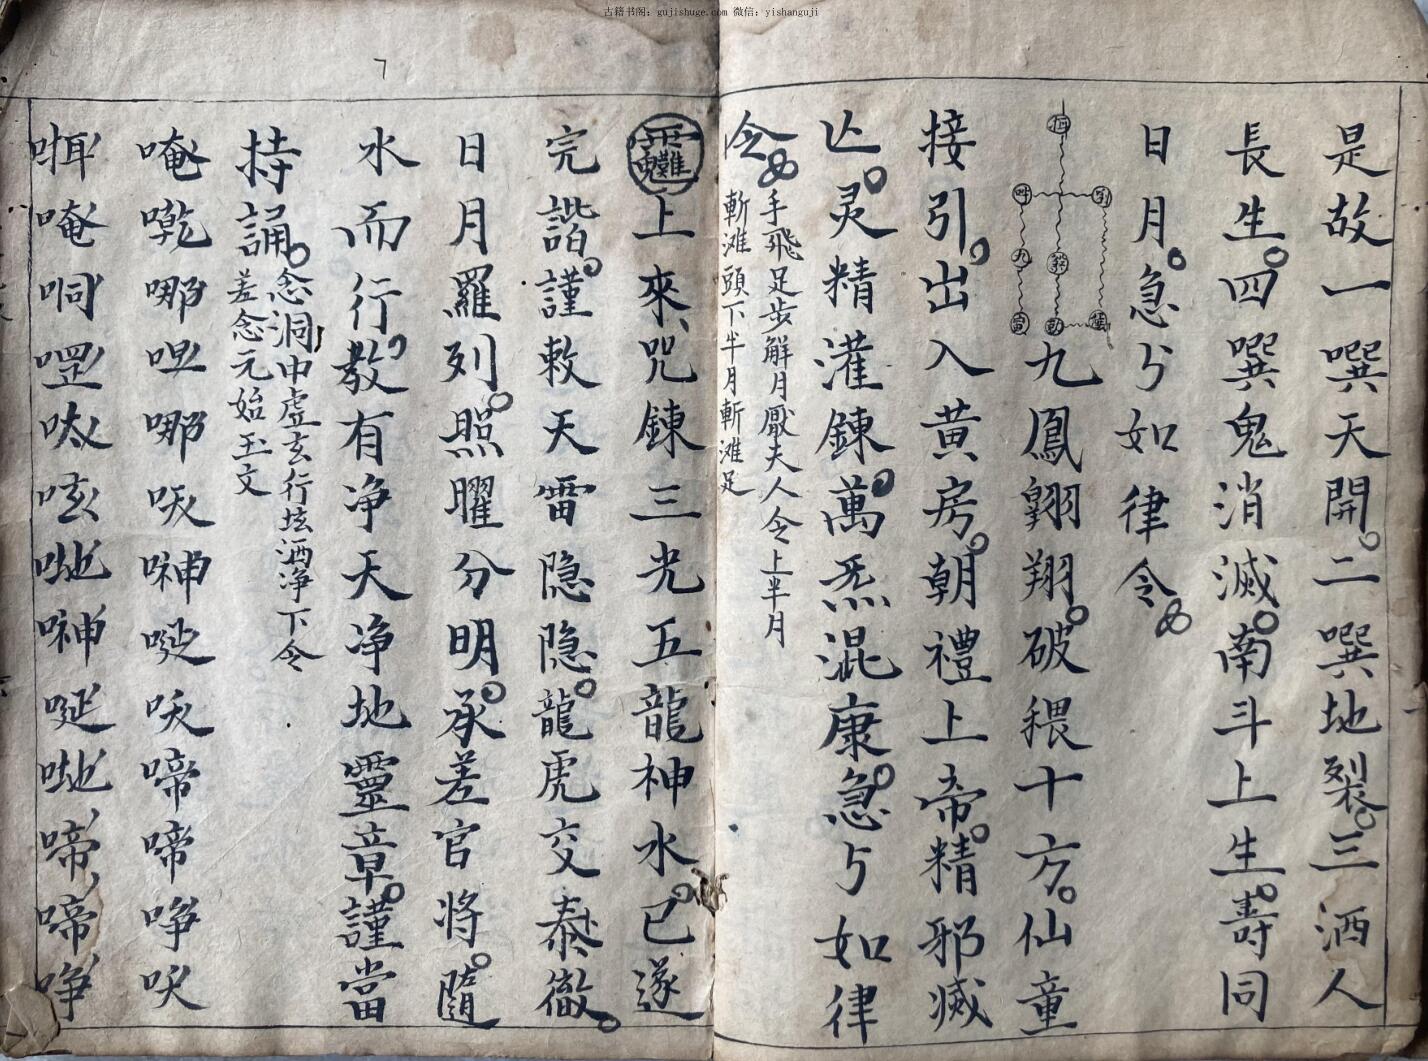 古籍书阁：gujishuge.com 微信：yishanguji
是故一噀天開二噀地裂三洒人
長生四噀鬼消滅南斗上生壽同
日月急㇉如律令
九鳳翱翔破穢十方仙童
接引出入黄房朝禮上帝精邪滅
亾灵精灌鍊萬炁混康急㇉如律
令
手飛足步觧月厭夫人令上半月
斬滩頭下半月斬滩足
上來咒鍊三光五龍神水已遂
完諧謹敕天雷隐隐龍虎交泰徹
日月羅列照曜分明承差官将隨
水而行教有净天净地靈章謹當
持誦
念洞中虚玄行坛洒净下令
差念元始玉文
唵㖫哪呾哪㕹㖕唌㕹啼啼㖓㕭
咡唵哃𠵽呔呟𠯋㖕唌𠯋啼啼㖓